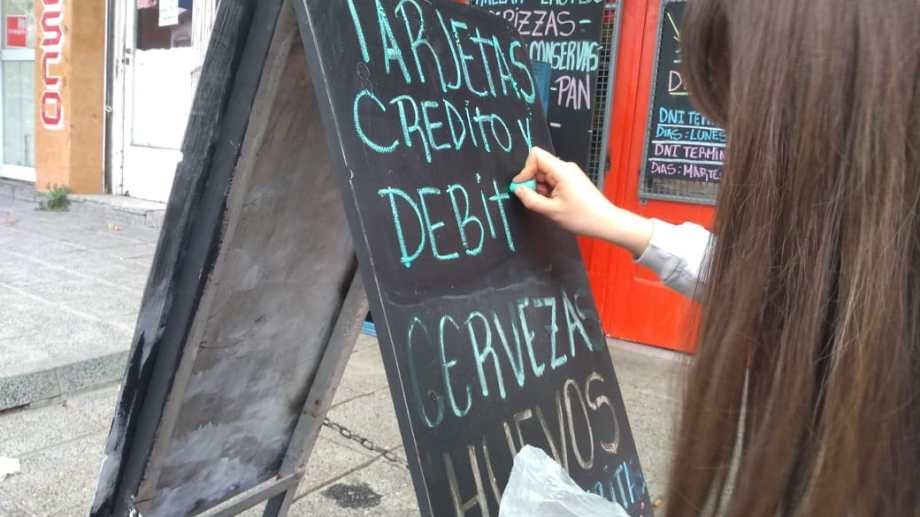 TARJETAS
CREDITO Y
DEBIT
CERVEZAS
HUEVOS
PIZZAS-
CONSERVAS
-PAN
DNI TERM
DIAS: LUNES
DNI TERMIN
DIAS: MARTES